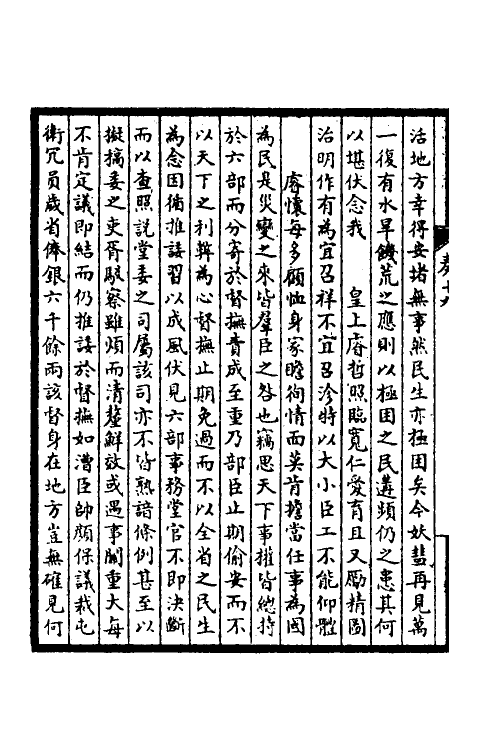 活地方幸得安堵無事然民生亦極困矣今妖彗再見萬
一復有水旱饑荒之應則以極困之民遘頻仍之患其何
以堪伏念我　皇上睿哲照臨寬仁愛育且又勵精圖
治明作有為宜召祥不宜召沴特以大小臣工不能仰體
睿懷每多顧恤身家瞻徇情面莫肯擔當任事為國
為民是災變之來皆羣臣之咎也竊思天下事權皆總持
於六部而分寄於督撫責成至重乃部臣止期偷安而不
以天下之利弊為心督撫止期免過而不以全省之民生
為念因循推諉習以成風伏見六部事務堂官不即決斷
而以查照說堂委之司屬該司亦不皆熟諳條例甚至以
擬稿委之吏胥駁察雖煩而清釐鮮效或遇事關重大每
不肯定議即結而仍推諉於督撫如漕臣帥顏保議裁屯
衛冗員歲省俸銀六千餘兩該督身在地方豈無確見何